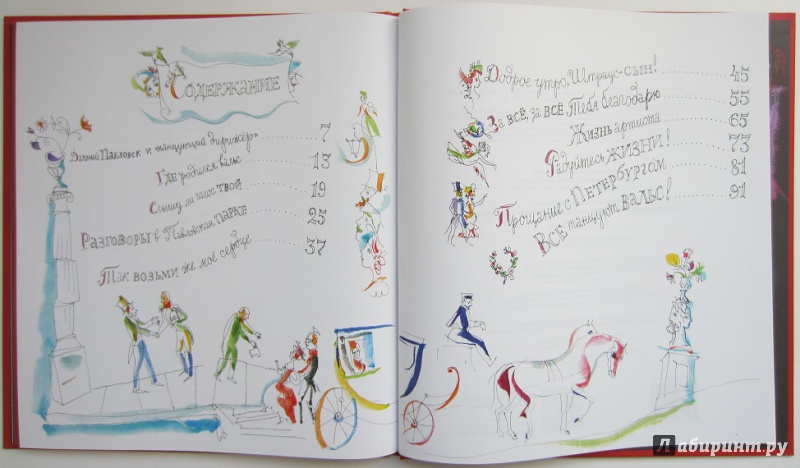 СОДЕРЖАНИЕ
Павловск и танцующий дирижёр 7
Где родился вальс 13
Слышу ли голос ТВОЙ 19
РАЗГОВОРЫ в Павловском ПАРКЕ 25
Так возьми же моё сердце 37
Доброе утро, Штраус-СЫН! 45
За ВСЁ, за ВСЁ Тебя благодарю 55
Жизнь артиста 65
Радуйтесь ЖИЗНИ! 73
Прощание с ПЕТЕРБУРГОМ 81
ВСЕ танцуют ВАЛЬС! 91
Лабиринт.ру